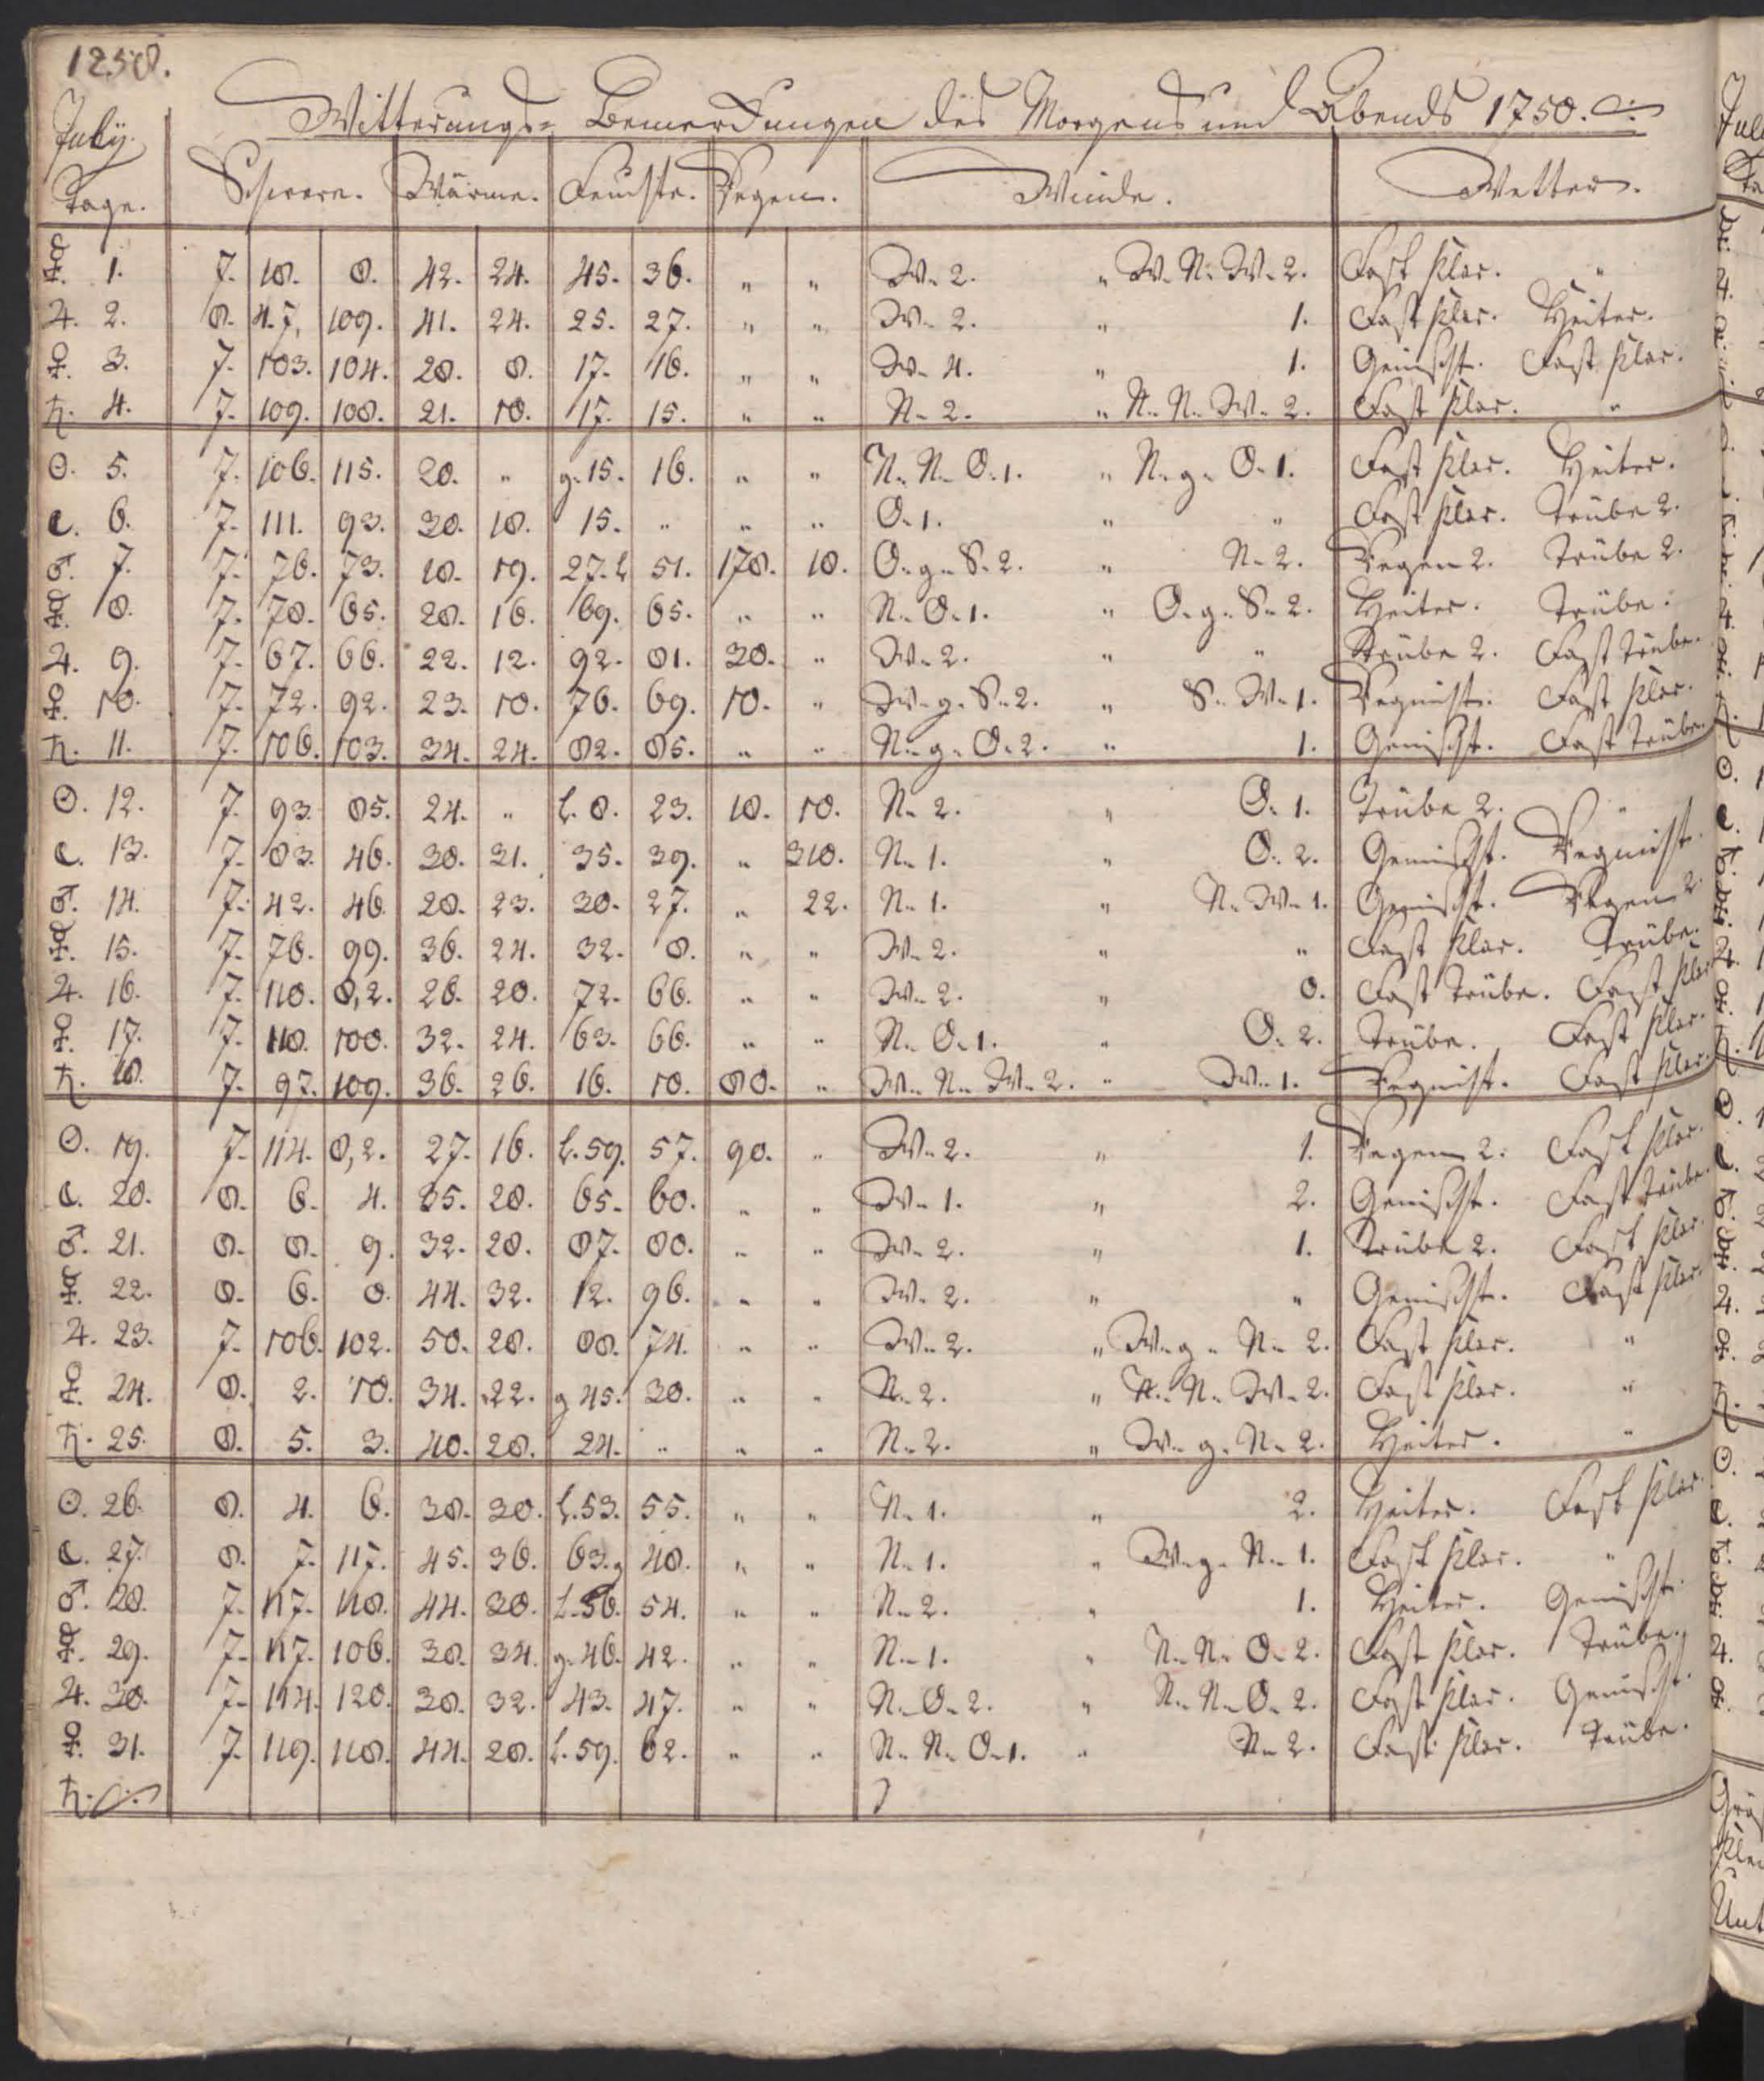 1258.
Witterungs= Bemerkungen des Morgens und Abends 1750.
July.
Tage. Schwere. Wärme. Feuchte. Regen. Winde. Wetter.
☿. 1. 7. 18. 8. 42. 24. 45. 36. " " W. 2. " W. N. W. 2. Fast klar. "
♃. 2. 8. 4.7, 109. 41. 24. 25. 27. " " W. 2. " 1. Fast klar. Heiter.
♀. 3. 7. 103. 104. 28. 8. 17. 16. " " W. 4. " 1. Gemischt. Fast klar.
♄. 4. 7. 109. 108. 21. 10. 17. 15. " " N. 2. " N. N. W. 2. Fast klar. "
☉. 5. 7. 106. 115. 20. " g. 15. 16. " " N. N. O. 1. " N. g. O. 1. Fast klar. Heiter.
☾. 6. 7. 111. 93. 30. 18. 15. " " " O. 1. " " Fast klar. Trübe 2.
♂. 7. 7. 76. 73. 18. 19. 27. l 51. 178. 18. O. g. S. 2. " N. 2. Regen 2. Trübe 2.
☿. 8. 7. 78. 65. 28. 16. 69. 65. " " N. O. 1. " O. g. S. 2. Heiter. Trübe.
♃. 9. 7. 67. 66. 22. 12. 92. 81. 30. " W. 2. " " Trübe 2. Fast trübe.
♀. 10. 7. 72. 92. 23. 10. 76. 69. 10. " W. g. S. 2. " S. W. 1. Regnicht. Fast klar.
♄. 11. 7. 106. 103. 34. 24. 82. 85. " " N. g. O. 2. " 1. Gemischt. Fast trübe.
☉. 12. 7. 93. 85. 24. " l. 8. 23. 18. 10. N. 2. " O. 1. Trübe 2. "
☾. 13. 7. 83. 46. 30. 21. 35. 39. " 310. N. 1. " O. 2. Gemischt. Regnicht.
♂. 14. 7. 42. 46. 28. 23. 30. 27. " 22. N. 1. " N. W. 1. Gemischt. Regen 2.
☿. 15. 7. 76. 99. 36. 24. 32. 8. " " W. 2. " " Fast klar. Trübe.
♃. 16. 7. 110. 8,2. 26. 20. 72. 66. " " W. 2. " 0. Fast trübe. Fast klar.
♀. 17. 7. 118. 100. 32. 24. 63. 66. " " N. O. 1. " O. 2. Trübe. Fast klar.
♄. 18. 7. 97. 109. 36. 26. 16. 10. 80. " W. N. W. 2. " W. 1. Regnicht. Fast klar.
☉. 19. 7. 114. 8,2. 27. 16. l. 59. 57. 90. " W. 2. " 1. Regen 2. Fast klar.
☾. 20. 8. 6. 4. 35. 28. 65. 60. " " W. 1. " 2. Gemischt. Fast trübe.
♂. 21. 8. 8. 9. 32. 28. 87. 80. " " W. 2. " 1. Trübe 2. Fast klar.
☿. 22. 8. 6. 0. 44. 32. 12. 96. " " W. 2. " " Gemischt. Fast klar.
♃. 23. 7. 106. 102. 50. 28. 88. 74. " " W. 2. " W. g. N. 2. Fast klar. "
♀. 24. 8. 2. 10. 34. 22. g 45. 30. " " N. 2. " N. N. W. 2. Fast klar. "
♄. 25. 8. 5. 3. 40. 28. 24. " " " N. 2. " W. g. N. 2. Heiter. "
☉. 26. 8. 4. 6. 38. 30. l. 53. 55. " " N. 1. " 2. Heiter. Fast klar.
☾. 27. 8. 7. 117. 45. 36. 63. g 48. " " N. 1. " W. g. N. 1. Fast klar. "
♂. 28. 7. 117. 118. 44. 30. l. 56. 54. " " N. 2. " 1. Heiter. Gemischt.
☿. 29. 7. 117. 106. 38. 34. g. 46. 42. " " N. 1. " N. N. O. 2. Fast klar. Trübe.
♃. 30. 7. 114. 120. 38. 32. 43. 47. " " N. O. 2. " N. N. O. 2. Fast klar. Gemischt.
♀. 31. 7. 119. 118. 44. 28. l. 59. 62. " " N. N. O. 1. " N. 2. Fast klar. Trübe.
♄.